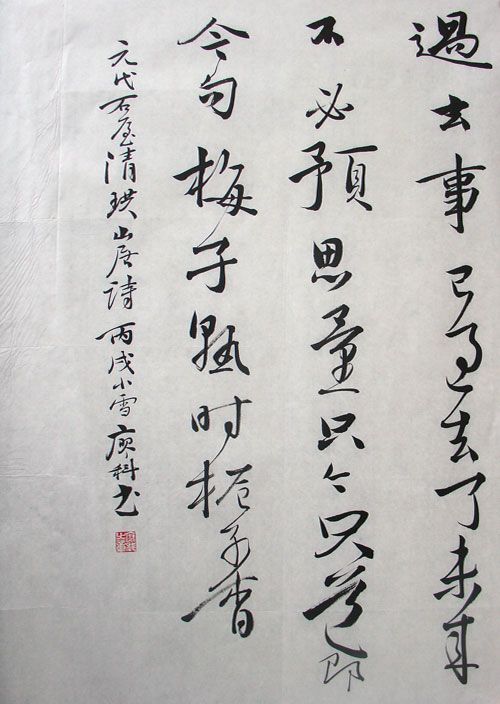 過去事已过去了未来
不必預思量只今只道即
今句梅子熟时栀子香
元代石屋清珙山居詩丙戌小雪科书